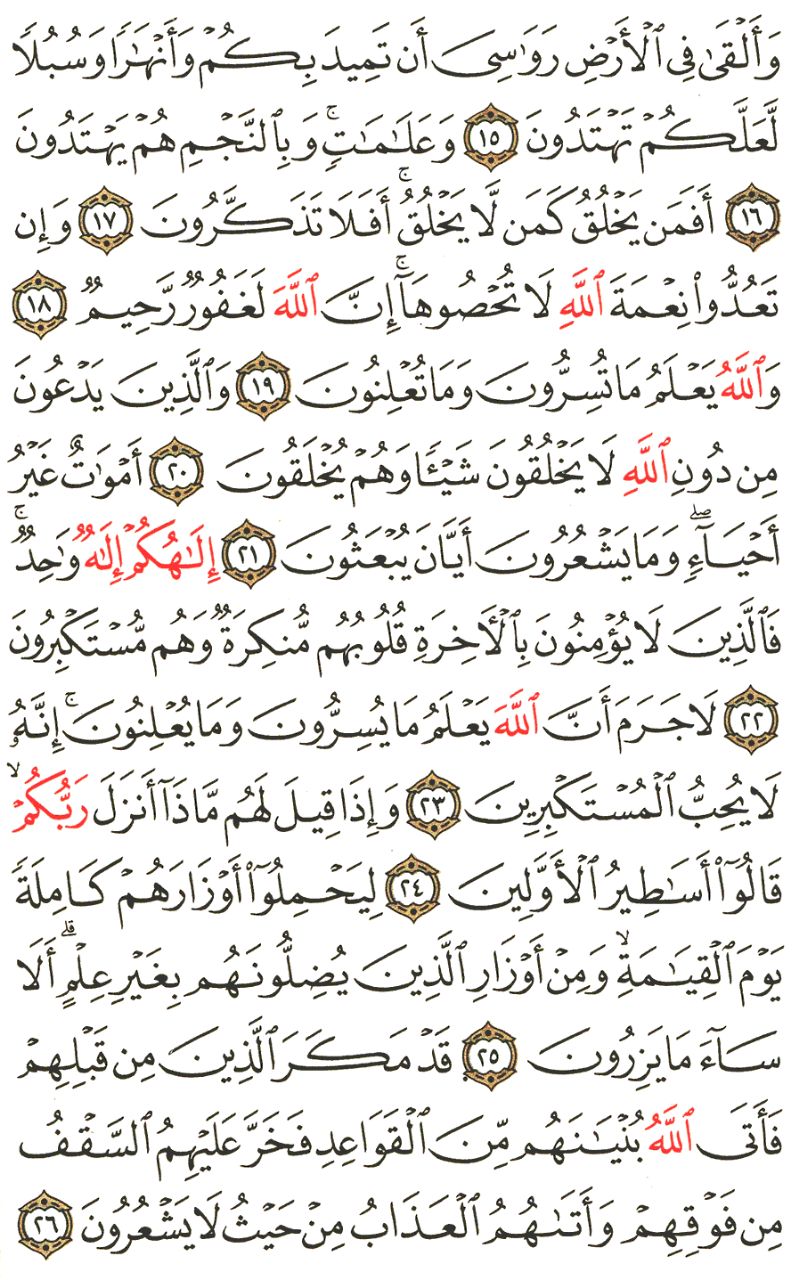 وَأَلْقَىٰ فِى ٱلْأَرْضِ رَوَٰسِىَ أَن تَمِيدَ بِكُمْ وَأَنْهَٰرًا وَسُبُلًا
لَّعَلَّكُمْ تَهْتَدُونَ ١٥ وَعَلَٰمَٰتٍ ۚ وَبِٱلنَّجْمِ هُمْ يَهْتَدُونَ
١٦ أَفَمَن يَخْلُقُ كَمَن لَّا يَخْلُقُ ۚ أَفَلَا تَذَكَّرُونَ ١٧ وَإِن
تَعُدُّوا۟ نِعْمَةَ ٱللَّهِ لَا تُحْصُوهَآ ۗ إِنَّ ٱللَّهَ لَغَفُورٌ رَّحِيمٌ ١٨
وَٱللَّهُ يَعْلَمُ مَا تُسِرُّونَ وَمَا تُعْلِنُونَ ١٩ وَٱلَّذِينَ يَدْعُونَ
مِن دُونِ ٱللَّهِ لَا يَخْلُقُونَ شَيْـًٔا وَهُمْ يُخْلَقُونَ ٢٠ أَمْوَٰتٌ غَيْرُ
أَحْيَآءٍ ۖ وَمَا يَشْعُرُونَ أَيَّانَ يُبْعَثُونَ ٢١ إِلَٰهُكُمْ إِلَٰهٌ وَٰحِدٌ ۚ
فَٱلَّذِينَ لَا يُؤْمِنُونَ بِٱلْءَاخِرَةِ قُلُوبُهُم مُّنكِرَةٌ وَهُم مُّسْتَكْبِرُونَ
٢٢ لَا جَرَمَ أَنَّ ٱللَّهَ يَعْلَمُ مَا يُسِرُّونَ وَمَا يُعْلِنُونَ ۚ إِنَّهُۥ
لَا يُحِبُّ ٱلْمُسْتَكْبِرِينَ ٢٣ وَإِذَا قِيلَ لَهُم مَّاذَآ أَنزَلَ رَبُّكُمْ ۙ
قَالُوٓا۟ أَسَٰطِيرُ ٱلْأَوَّلِينَ ٢٤ لِيَحْمِلُوٓا۟ أَوْزَارَهُمْ كَامِلَةً
يَوْمَ ٱلْقِيَٰمَةِ ۙ وَمِنْ أَوْزَارِ ٱلَّذِينَ يُضِلُّونَهُم بِغَيْرِ عِلْمٍ ۗ أَلَا
سَآءَ مَا يَزِرُونَ ٢٥ قَدْ مَكَرَ ٱلَّذِينَ مِن قَبْلِهِمْ
فَأَتَى ٱللَّهُ بُنْيَٰنَهُم مِّنَ ٱلْقَوَاعِدِ فَخَرَّ عَلَيْهِمُ ٱلسَّقْفُ
مِن فَوْقِهِمْ وَأَتَىٰهُمُ ٱلْعَذَابُ مِنْ حَيْثُ لَا يَشْعُرُونَ ٢٦